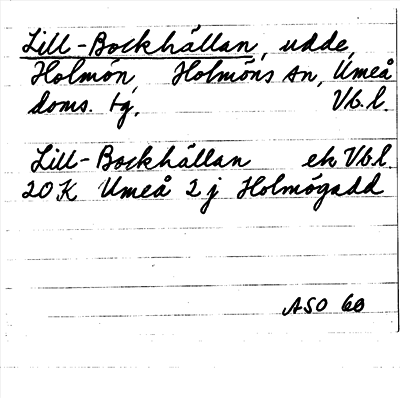 Lill-Bockhällan, udde,
Holmön, Holmöns sn, Umeå
doms. tg, Vb.l.
Lill-Bockhällan ek Vb.l.
20 K Umeå 2 j Holmögadd
ASO 60